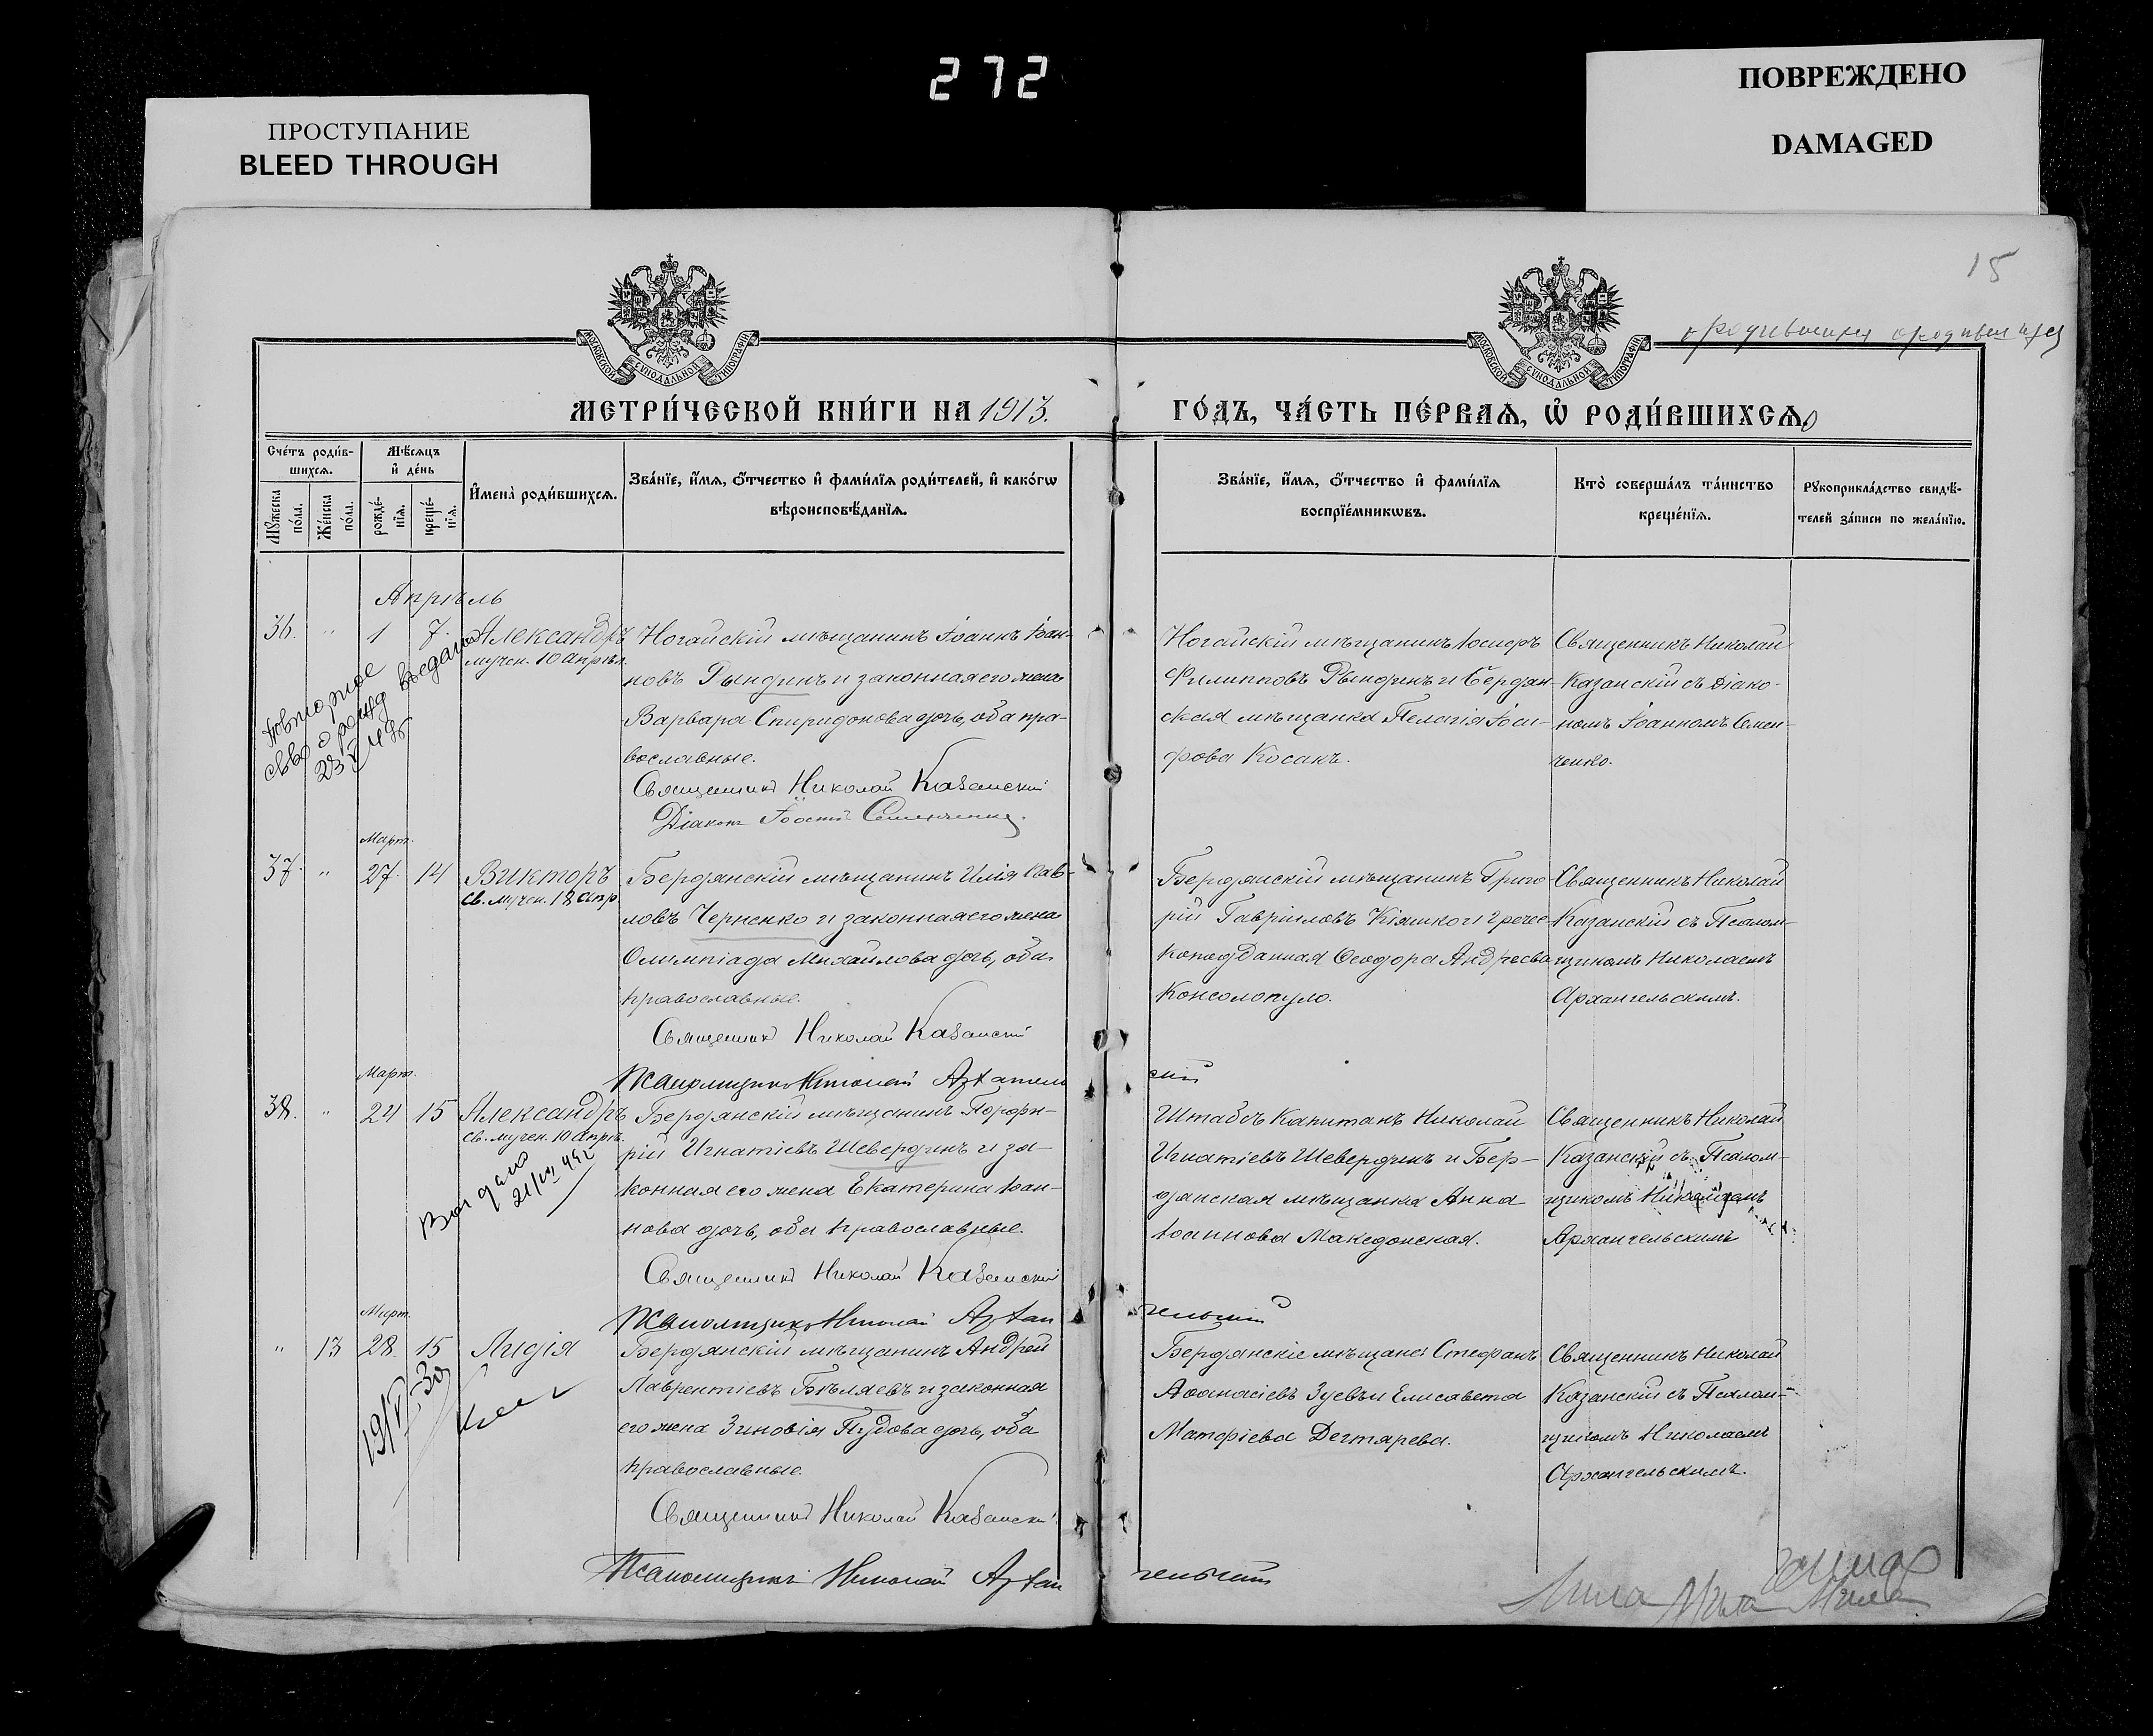 272
ПРОСТУПАНИЕ
BLEED THROUGH
ПОВРЕЖДЕНО
DAMAGED
15
МОСКОВСКОЙ СѴНОДАЛЬНОЙ ТИПОГРАФІИ
МОСКОВСКОЙ СѴНОДАЛЬНОЙ ТИПОГРАФІИ
МЕТРИ́ЧЕСКОЙ КНИ́ГИ НА 1913.
ГО́ДЪ, ЧА́СТЬ ПЕ́РВАѦ, Ѡ҆ РОДИ́ВШИХСѦ
Счéтъ роди́в-
шихсѧ.
Мѣ́сѧцъ
и҆ дéнь
Мꙋ́жеска
по́ла.
Жéнска
по́ла.
рождé-
нїѧ.
крещé-
нїѧ.
И҆мена̀ роди́вшихсѧ.
Зва́нїе, и҆́мѧ, ѻ҆́тчество и҆ фами́лїѧ роди́телей, и҆ како́гѡ
вѣроисповѣ́данїѧ.
Зва́нїе, и҆́мѧ, ѻ҆́тчество и҆ фами́лїѧ
воспрїéмникѡвъ.
Кто̀ соверша́лъ та́инство
крещéнїѧ.
Рꙋкоприкла́дство свидѣ́-
телей за́писи по жела́нїю.
Апрѣль
36. " 1 7. Александръ
мучен. 10 Апрѣл.
Ногайскій мѣщанинъ Іоаннъ Іоан-
новъ Рындинъ и законная его жена
Варвара Спиридонова дочь, оба пра-
вославные.
Священникъ Николай Казанскій
Діаконъ Іоаннъ Семенченко.
Ногайскій мѣщанинъ Іосифъ
Филипповъ Рындинъ и Бердян-
ская мѣщанка Пелагія Іоси-
фова Косакъ.
Священникъ Николай
Казанскій съ Діако-
номъ Іоанномъ Семен-
ченко.
Повторное
свво о рожд выдано
23
Март.
37. " 27. 14 Викторъ
Св. мучен. 18 Апр.
Бердянскій мѣщанинъ Илія Пав-
ловъ Черненко и законная его жена
Олимпіада Михайлова дочь, оба
православные.
Священникъ Николай Казанскій
Псаломщикъ Николай Архангельскій
Бердянскій мѣщанинъ Григо-
рій Гавріиловъ Кіяшко и Гречес-
коподданная Ѳеодора Андреева
Консолопуло.
Священникъ Николай
Казанскій съ Псалом-
щикомъ Николаемъ
Архангельскимъ.
Март.
38. " 24 15 Александръ
Св. мучен. 10 Апрѣ.
Бердянскій мѣщанинъ Порфи-
рій Игнатіевъ Шевердинъ и за-
конная его жена Екатерина Іоан-
нова дочь, оба православные.
Священникъ Николай Казанскій
Псаломщикъ Николай Архангельскій
Штабсъ Капитанъ Николай
Игнатіевъ Шевердинъ и Бер-
дянская мѣщанка Анна
Іоаннова Македонская.
Священникъ Николай
Казанскій съ Псалом-
щикомъ Николаемъ
Архангельскимъ
Март.
" 13 28. 15 Лидія
Бердянскій мѣщанинъ Андрей
Лаврентіевъ Бѣляевъ и законная
его жена Зиновія Пудова дочь, оба
православные.
Священникъ Николай Казанскій
Псаломщикъ Николай Архангельскій
Бердянскіе мѣщане: Стефанъ
Аѳанасіевъ Зуевъ и Елисавета
Матѳіева Дегтярева.
Священникъ Николай
Казанскій съ Псалом-
щикомъ Николаемъ
Архангельскимъ.